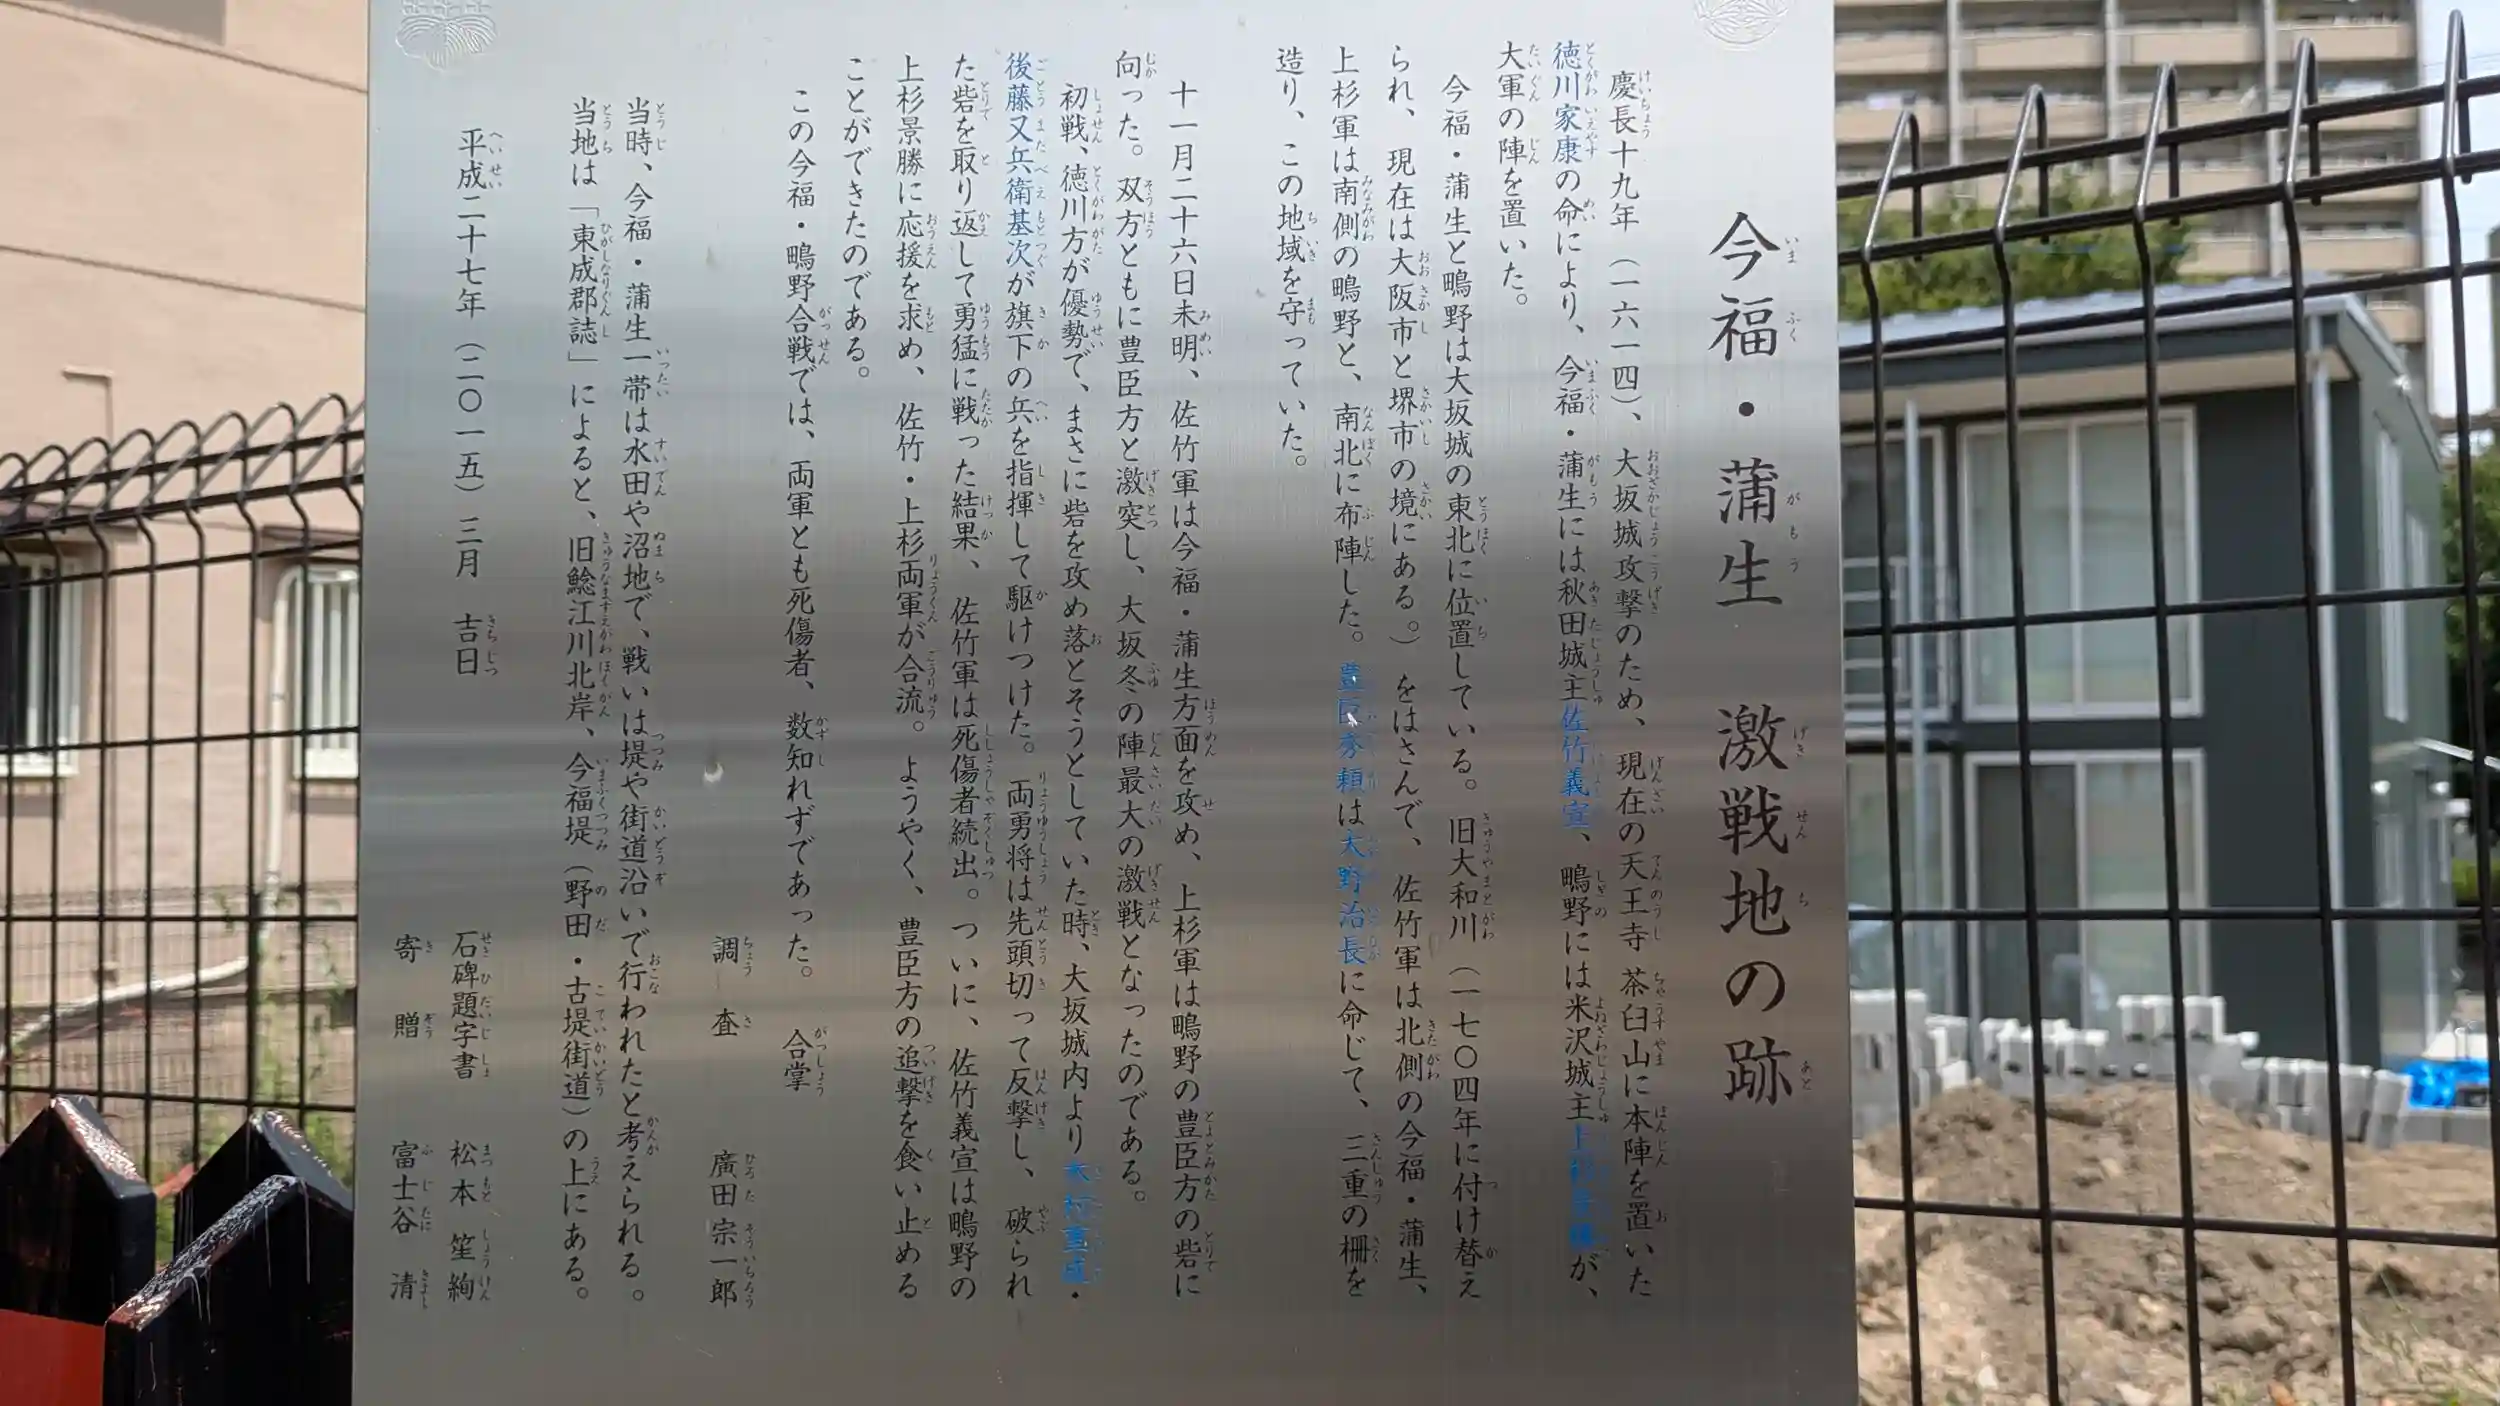 今福・蒲生 激戦地の跡
慶長十九年(一六一四)、大坂城攻撃のため、現在の天王寺茶臼山に本陣を置いた
徳川家康の命により、今福・蒲生には秋田城主佐竹義宣、鴫野には米沢城主上杉景勝が、
大軍の陣を置いた。
今福・蒲生と鴫野は大坂城の東北に位置している。旧大和川(一七〇四年に付け替え
られ、現在は大阪市と堺市の境にある。)をはさんで、佐竹軍は北側の今福・蒲生、
上杉軍は南側の鴫野と、南北に布陣した。豊臣秀頼は大野治長に命じて、三重の柵を
造り、この地域を守っていた。
十一月二十六日未明、佐竹軍は今福・蒲生方面を攻め、上杉軍は鴫野の豊臣方の砦に
向った。双方ともに豊臣方と激突し、大坂冬の陣最大の激戦となったのである。
初戦、徳川方が優勢で、まさに砦を攻め落とそうとしていた時、大坂城内より木村重成・
後藤又兵衛基次が旗下の兵を指揮して駆けつけた。両勇将は先頭切って反撃し、破られ
た砦を取り返して勇猛に戦った結果、佐竹軍は死傷者続出。ついに、佐竹義宣は鴫野の
上杉景勝に応援を求め、佐竹・上杉両軍が合流。ようやく、豊臣方の追撃を食い止める
ことができたのである。
この今福・鴫野合戦では、両軍とも死傷者、数知れずであった。 合掌
調 査 廣田 宗一郎
当時、今福・蒲生一帯は水田や沼地で、戦いは堤や街道沿いで行われたと考えられる。
当地は「東成郡誌」によると、旧鯰江川北岸、今福堤(野田・古堤街道)の上にある。
平成二十七年(二〇一五)三月 吉日
石碑題字書 松本 笙絢
寄 贈 富士谷 清